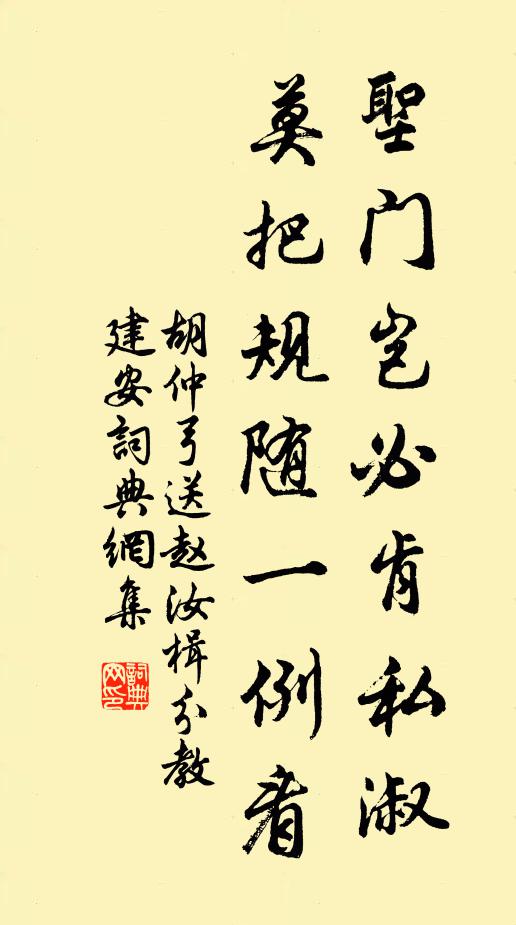 聖门岂必肯私淑
莫把规随一例看
胡仲弓送赵汝楫分教
建安詞典網集
詞典網印